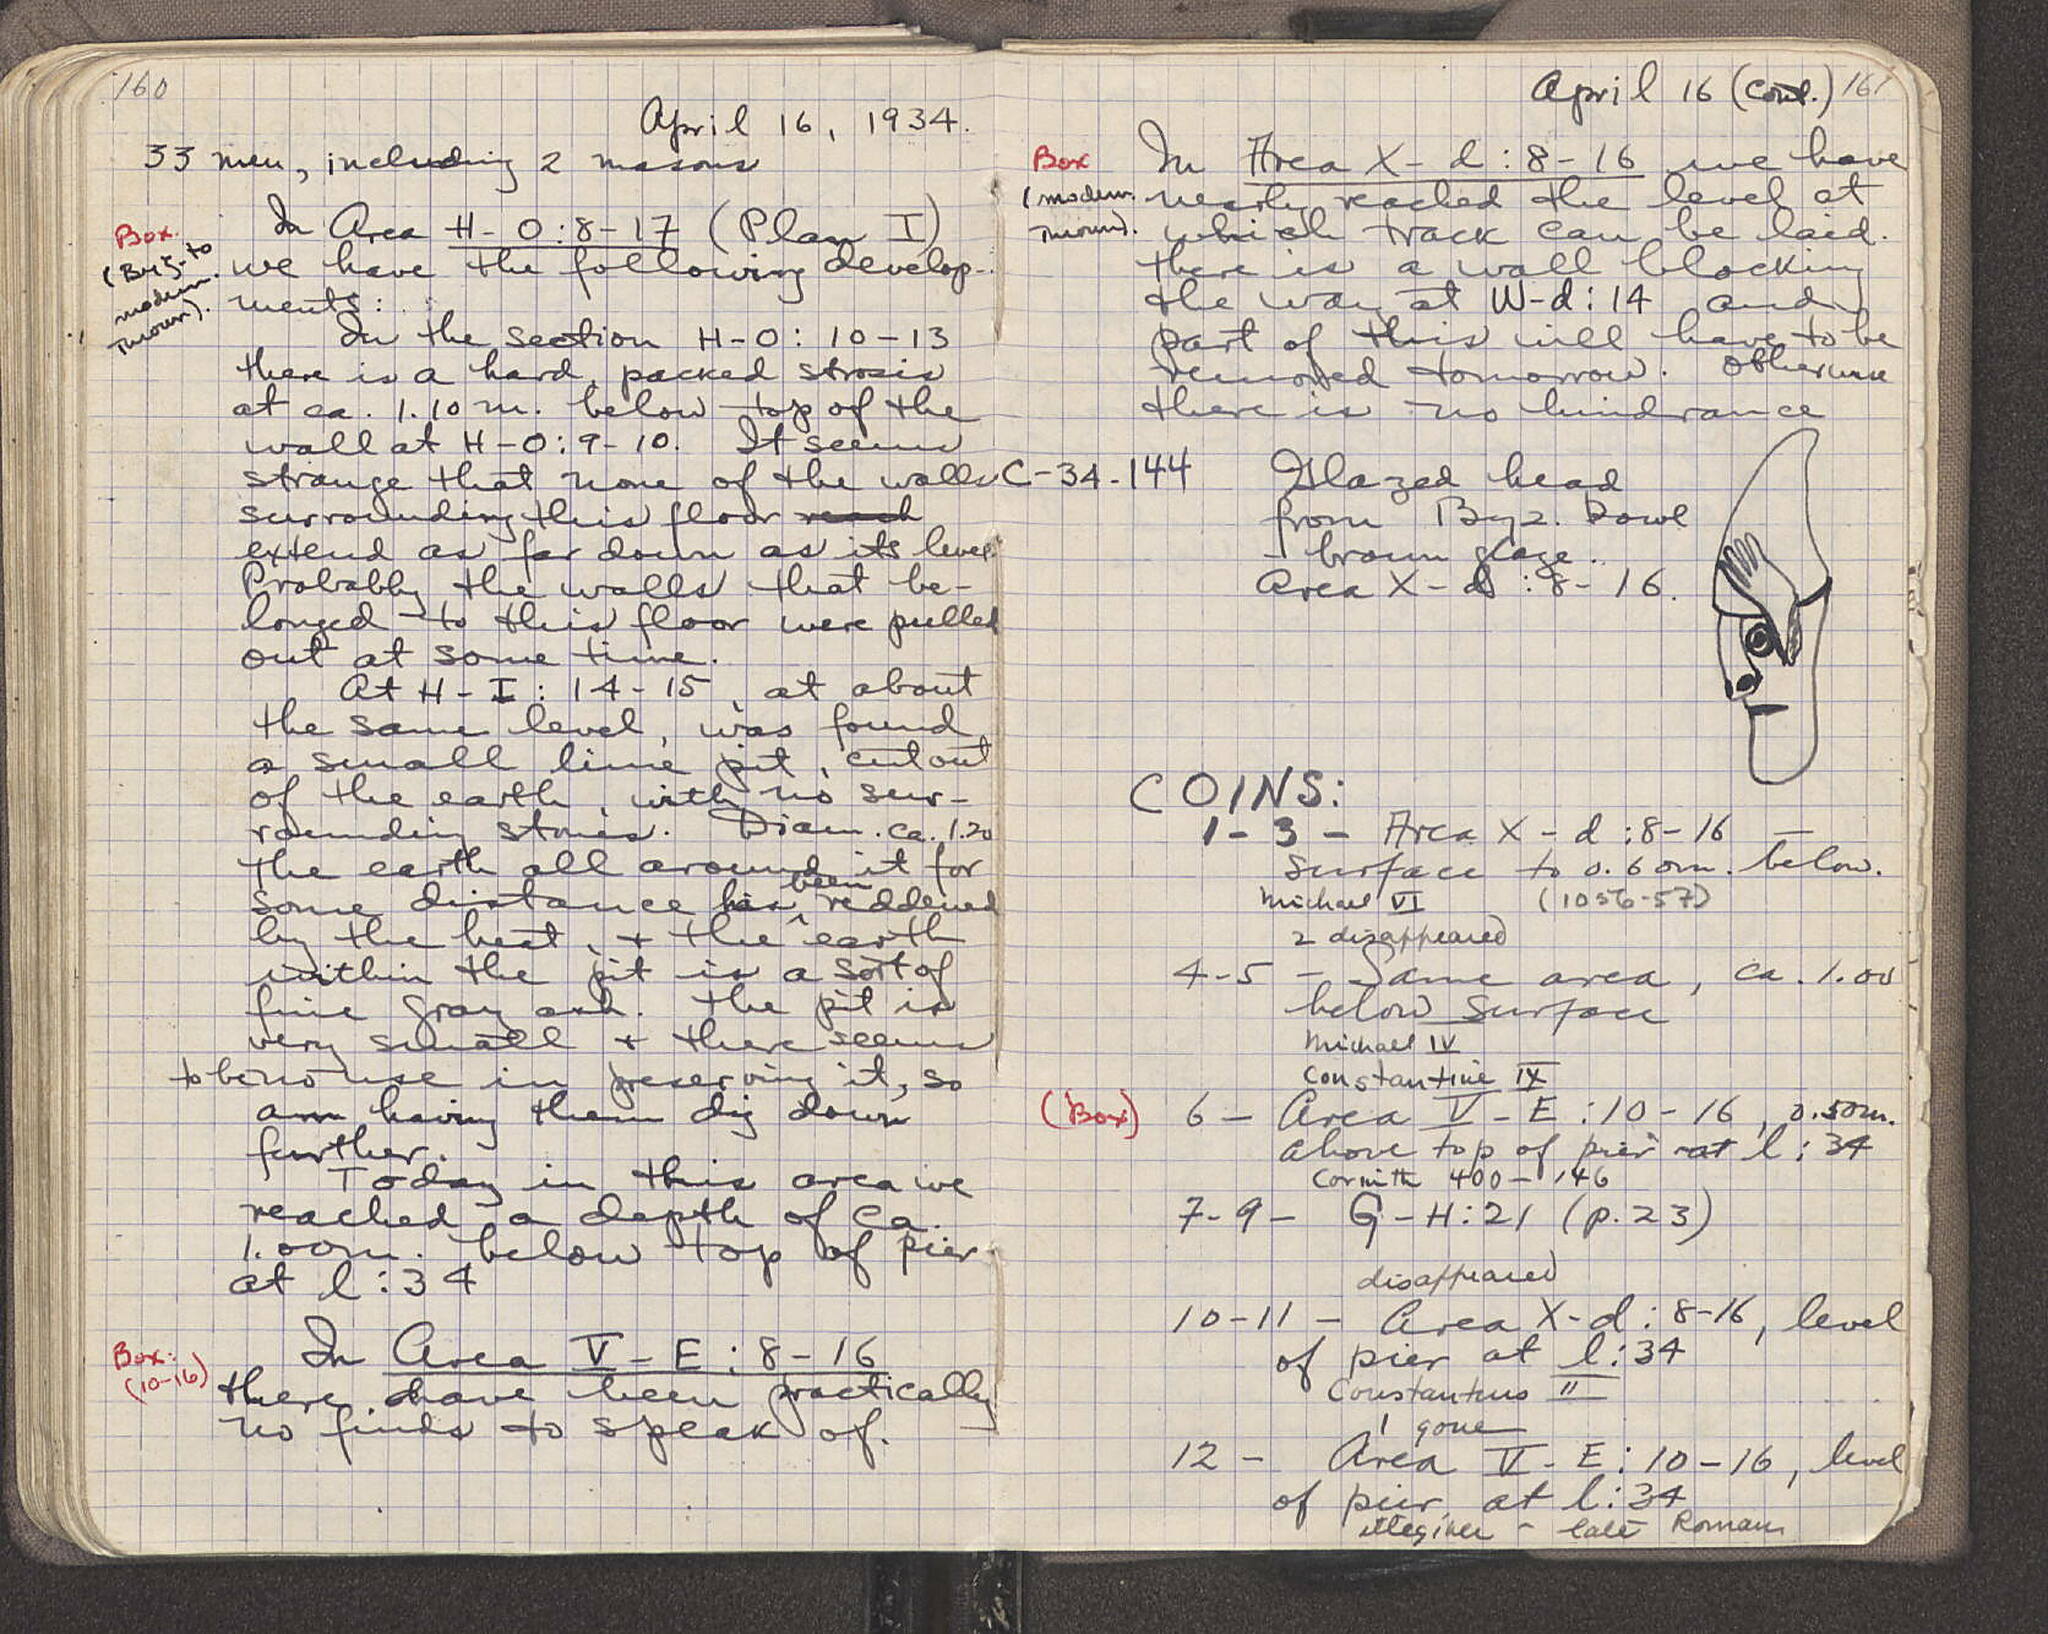 160
April 16, 1934.
33 men, including 2 masons
Box.
(Byz. to
modern.
thrown).
In Area H-O:8-17 (Plan I)
we have the following develop-
ments:
In the section H-O: 10-13
there is a hard, packed strosis
at ca. 1.10 m. below top of the
wall at H-O:9-10. It seems
strange that none of the walls
surrounding this floor reach
extend as far down as its level.
Probably the walls that be-
longed to this floor were pulled
out at some time.
At H-I: 14-15, at about
the same level, was found
a small lime pit, cut out
of the earth, with no sur-
rounding stones. Diam. ca. 1.20
The earth all around it for
some distance has been reddened
by the heat, + the earth
within the pit is a sort of
fine gray ash. The pit is
very small + there seems
to be no use in preserving it, so
am having them dig down
further.
Today in this area we
reached a depth of ca.
1.00m. below top of pier
at l:34
Box:
(10-16)
In Area V-E:8-16
there have been practically
no finds to speak of.
April 16 (cont.) 161
Box
(modern.
thrown).
In Area X-d:8-16 we have
nearly reached the level at
which track can be laid.
There is a wall blocking
the way at W-d:14 and
part of this will have to be
removed tomorrow. Otherwise
there is no hindrance
C-34-144 Glazed head
from Byz. bowl
- brown glaze.
Area X-d:8-16.
COINS:
1-3 - Area X-d:8-16 -
surface to 0.60m. below.
Michael VI (1056-57)
2 disappeared
4-5 - Same area, ca. 1.00
below surface
Michael IV
Constantine IX
(Box) 6 - Area V-E:10-16, 0.50m.
above top of pier at l:34
Corinth 400-146
7-9 - G-H:21 (p.23)
disappeared
10-11 - Area X-d:8-16, level
of pier at l:34
Constantius II
1 gone
12 - Area V-E:10-16, level
of pier at l:34
illegible - late Roman